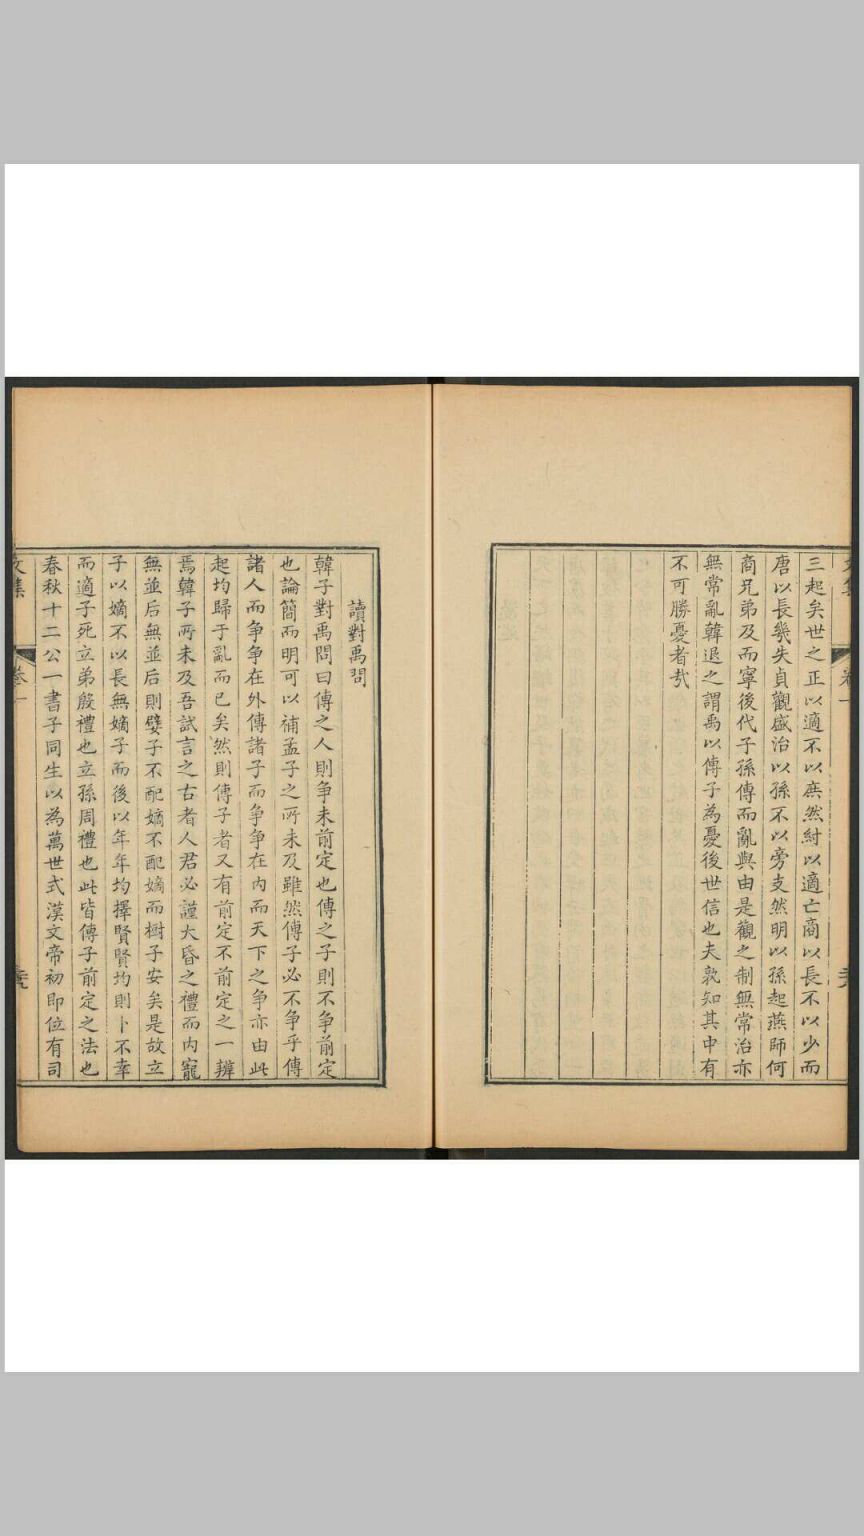 三起矣世之正以適不以庶然紂以適亡商以長不以少而
唐以長幾失貞觀盛治以孫不以旁支然明以孫起燕師何
商兄弟及而寧後代子孫傳而亂與由是觀之制無常治亦
無常亂韓退之謂禹以傳子為憂後世信也夫孰知其中有
不可勝憂者哉
讀對禹問
韓子對禹問曰傳之人則爭未前定也傳之子則不爭前定
也論簡而明可以補孟子之所未及雖然傳子必不爭乎傳
諸人而爭爭在外傳諸子而爭爭在內而天下之爭亦由此
起均歸于亂而已矣然則傳子者又有前定不前定之一辨
焉韓子所未及吾試言之古者人君必謹大昏之禮而內寵
無並后無並后則孽子不配嫡不配嫡而樹子安矣是故立
子以嫡不以長無嫡子而後以年年均擇賢賢均則卜不幸
而適子死立弟殷禮也立孫周禮也此皆傳子前定之法也
春秋十二公一書子同生以為萬世式漢文帝初即位有司
文集
卷一